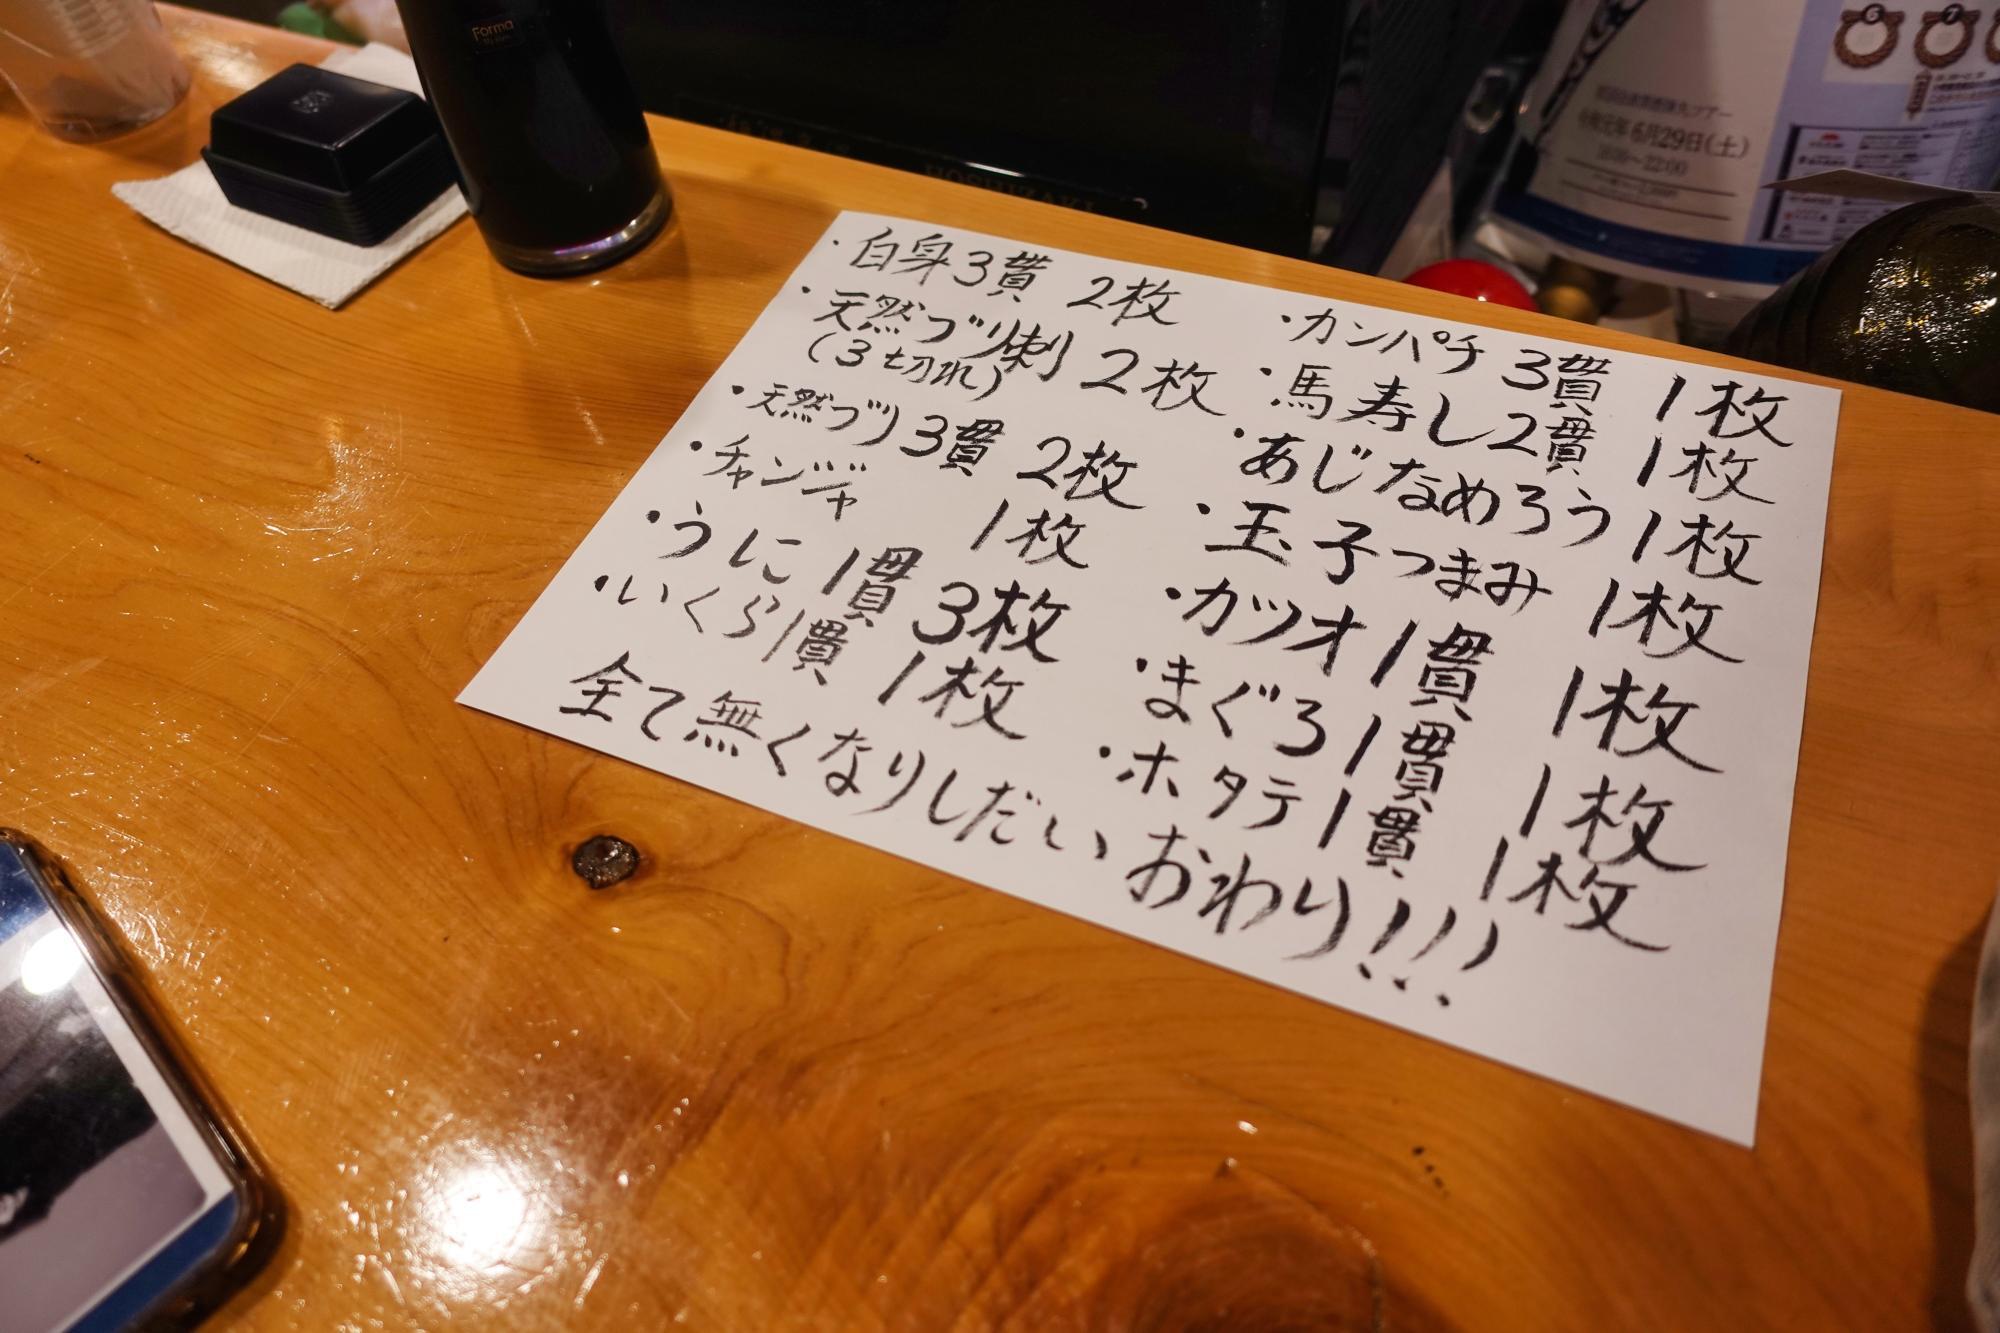 ・白身3貫 2枚
・天然ブリ刺 2枚
(3切れ)
・天然ブリ3貫 2枚
・チャンジャ 1枚
・うに1貫 3枚
・いくら1貫 1枚
・カンパチ 3貫 1枚
・馬寿し2貫 1枚
・あじなめろう 1枚
・玉子つまみ 1枚
・カツオ1貫 1枚
・まぐろ1貫 1枚
・ホタテ1貫 1枚
全て無くなりしだい おわり!!!
Forma
HOSHIZAKI
令和元年6月29日(土)
6
7